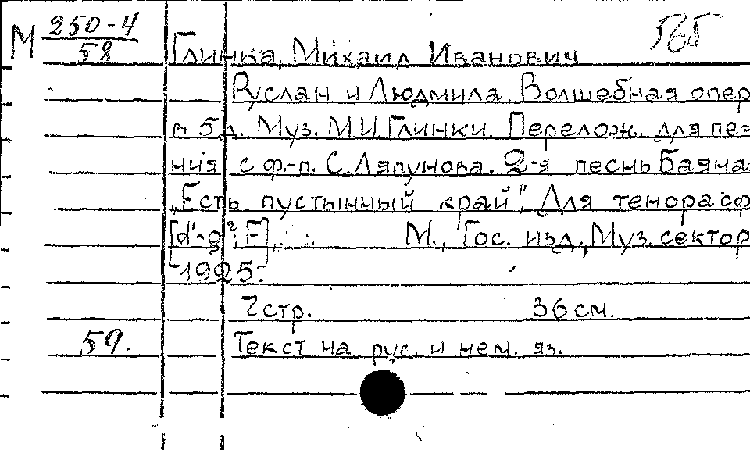 М 250-4/58 565
Глинка, Михаил Иванович
Руслан и Людмила. Волшебная опер
в 5 д. Муз. М.И. Глинки. Перелож. для пе-
ния с ф.-п. С. Ляпунова. 2-я песнь Баяна
"Есть пустынный край". Для тенора с ф
[d'-g²; F]. М., Гос. изд., Муз. сектор
1925.
7 стр. 36 см
59. Текст на рус. и нем. яз.